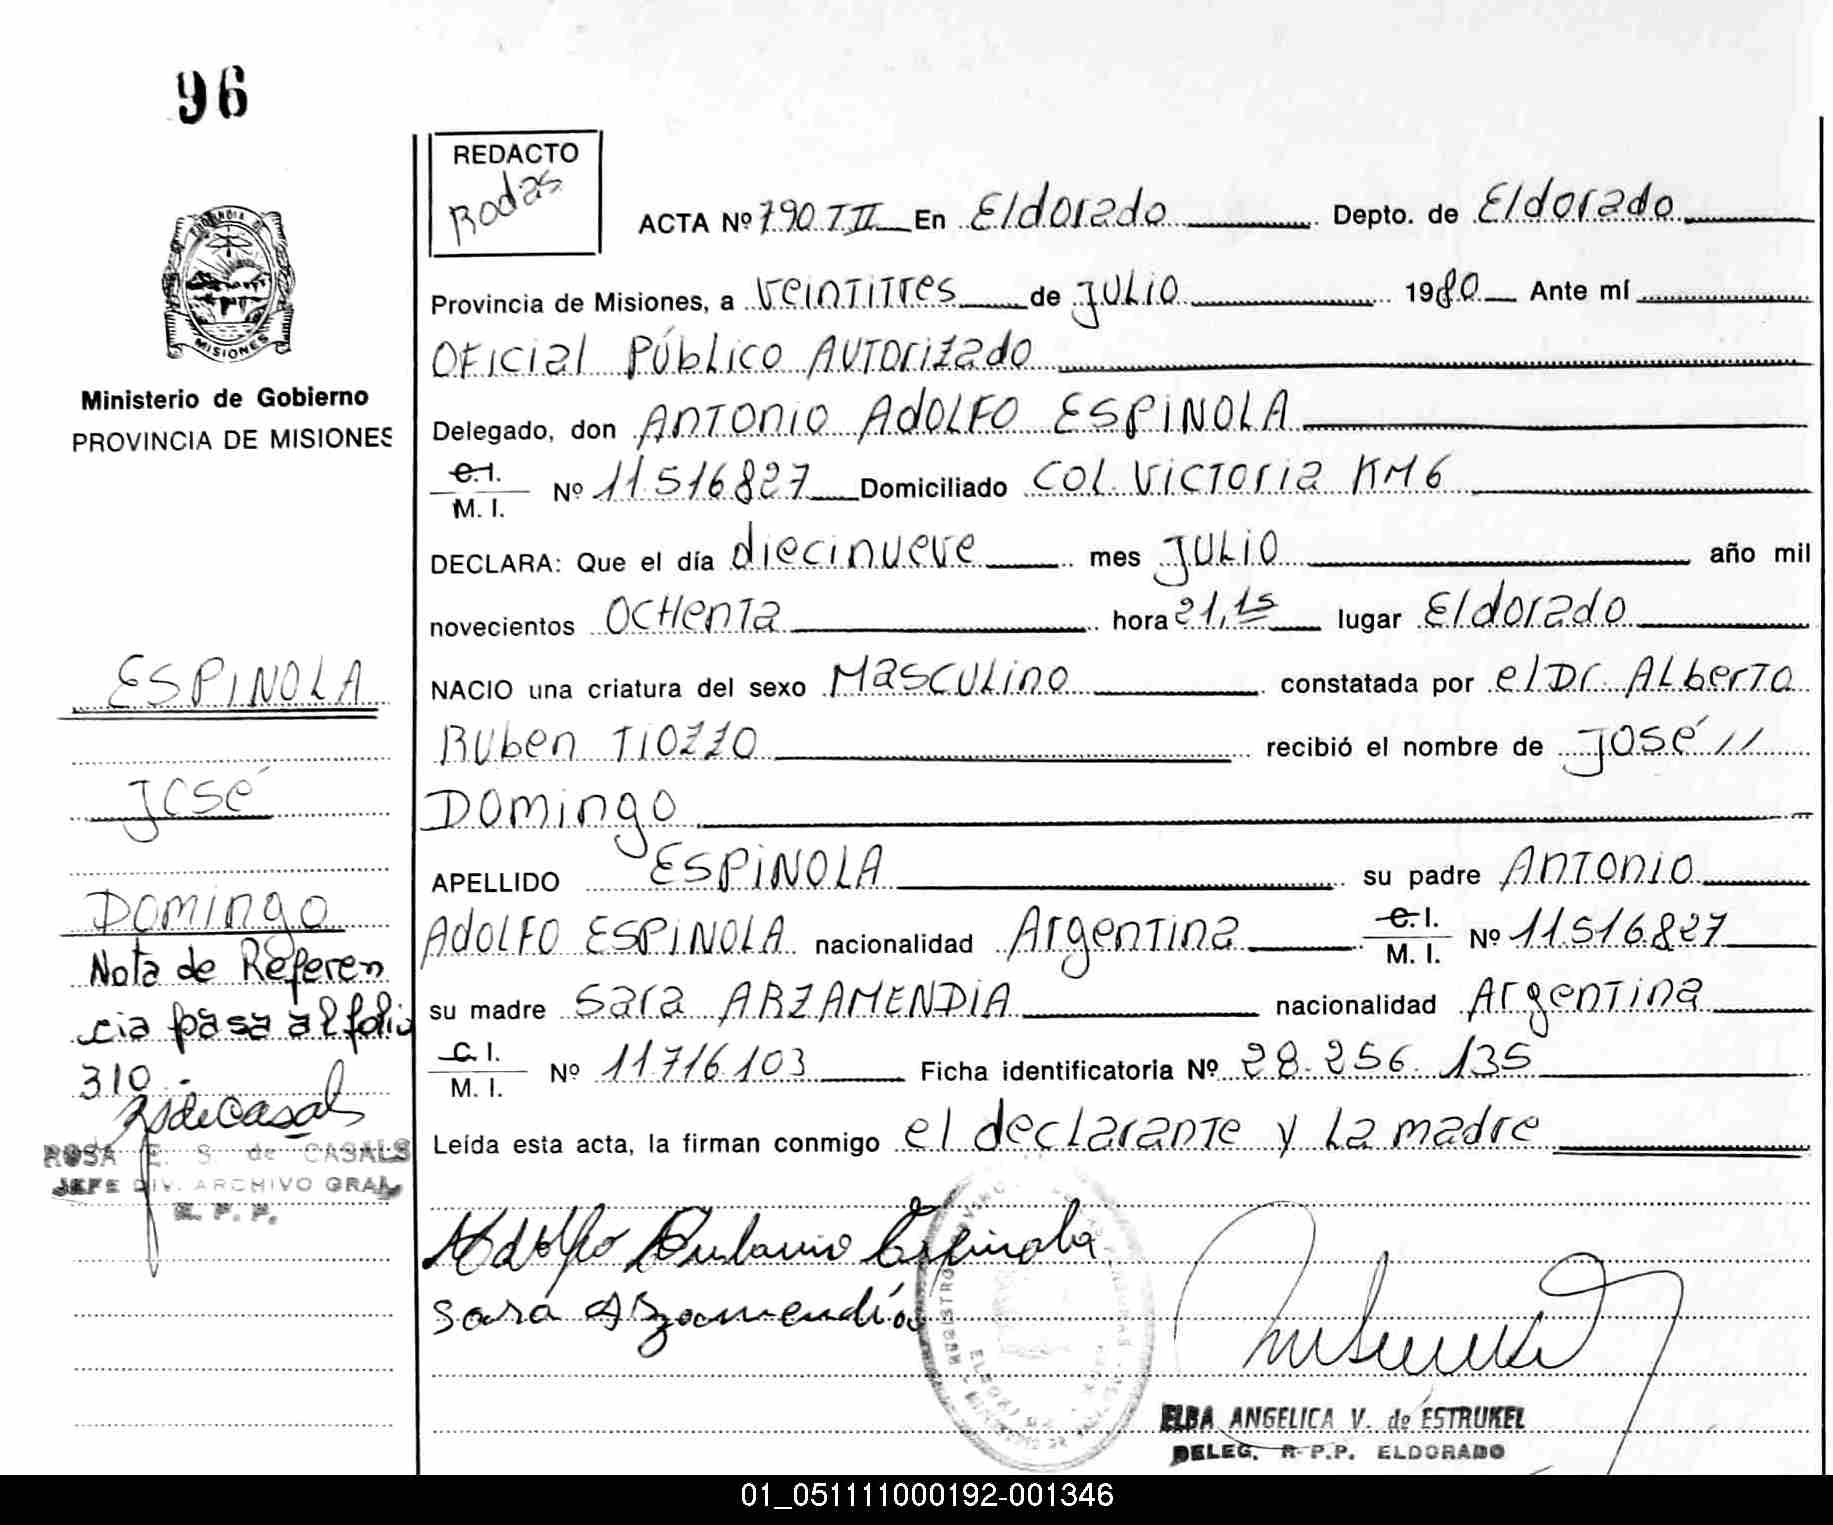 96
REDACTO
Rodas
ACTA Nº 790 T II En Eldorado Depto. de Eldorado
Provincia de Misiones, a Veintitres de Julio 1980 Ante mí
Oficial Público Autorizado
Delegado, don Antonio Adolfo ESPINOLA
C.I.
M. I. Nº 11.516.827 Domiciliado Col. Victoria KM 6
DECLARA: Que el día diecinueve mes Julio año mil
novecientos Ochenta hora 21,15 lugar Eldorado
NACIO una criatura del sexo Masculino constatada por el Dr. Alberto
Ruben Tiozzo recibió el nombre de José //
Domingo
APELLIDO ESPINOLA su padre Antonio
Adolfo ESPINOLA nacionalidad Argentina C.I.
M. I. Nº 11.516.827
su madre Sara ARZAMENDIA nacionalidad Argentina
C.I.
M. I. Nº 11.716.103 Ficha identificatoria Nº 28.256.135
Leída esta acta, la firman conmigo el declarante y la madre
Adolfo Espinola
Sara Arzamendia
ELBA ANGELICA V. de ESTRUKEL
DELEG. R.P.P. ELDORADO
MISIONES
Ministerio de Gobierno
PROVINCIA DE MISIONES
ESPINOLA
José
Domingo
Nota de Referen
cia pasa al folio
310.-
ROSA E. S. de CASALS
JEFE DIV. ARCHIVO GRAL
R. P. P.
01_051111000192-001346